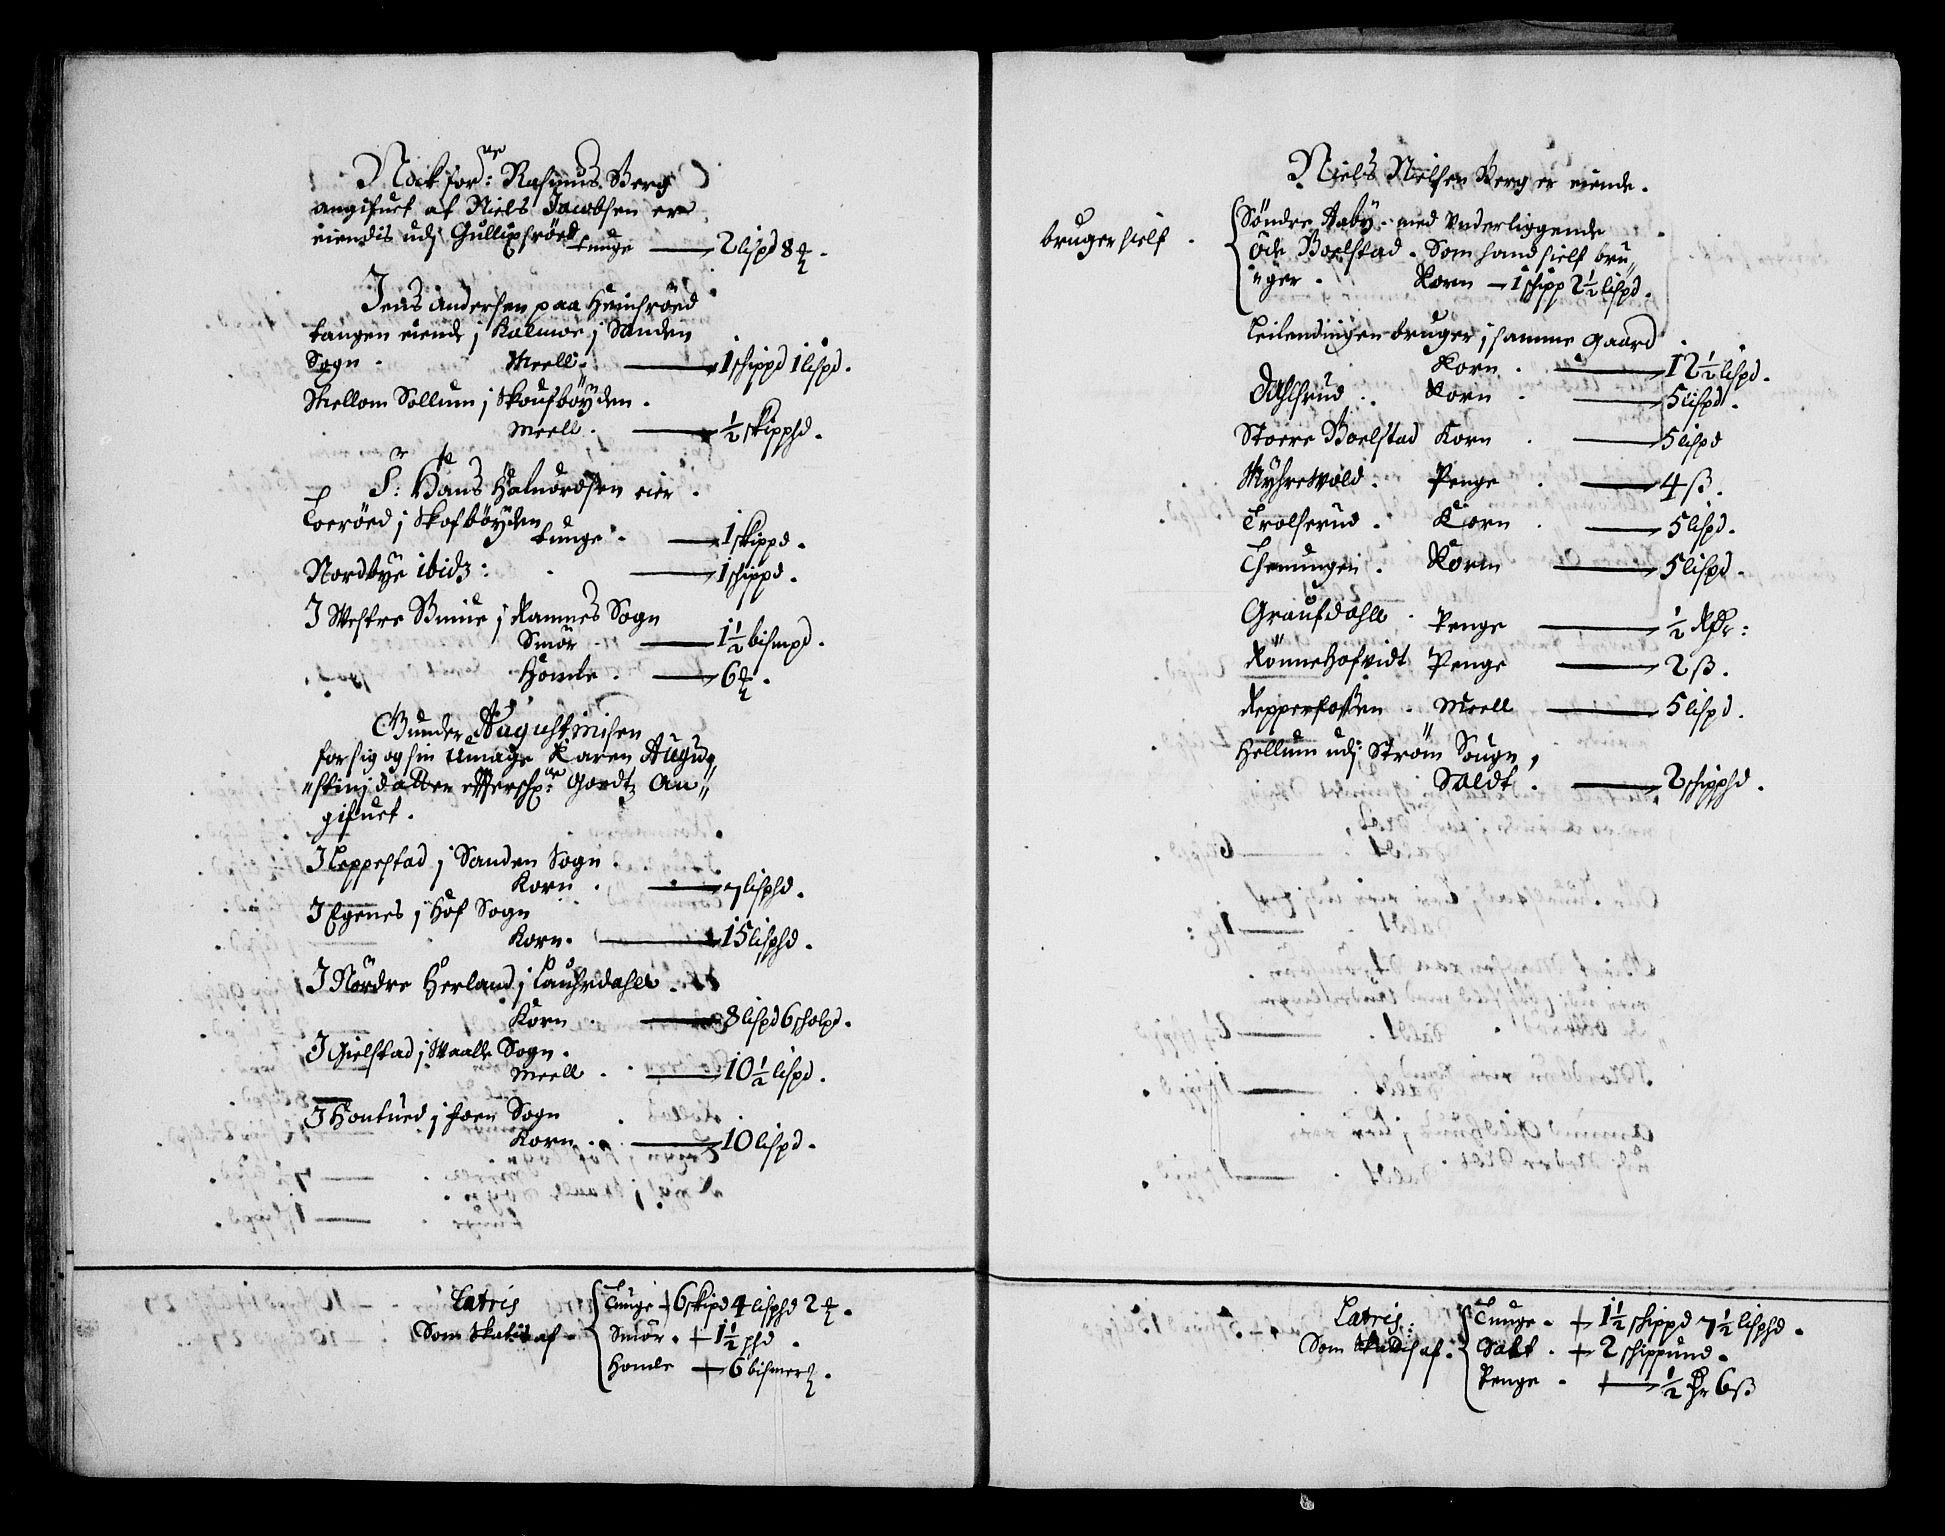 Nock for: Rasmus Berg
angifuet af Niels Jacobsen er
eiendis udj Gullixsröed
tunge — 2 lispd 8 ℔.
Jens Andersen paa Henichröed
tangen eiende j Kalmoe j Sanden
Sogn. Meell. — 1 schippd 1 lispd.
Mellom Sollum j Skoufböyden.
Meell. — ½ skippd.
Sr: Hans Halvordsen eier.
Toeröed j Skofböyden
tunge. — 1 skippd.
Nordbye ibid: — 1 schippd.
J Westre Binne j Ramnes Sogn
Smör — 1½ bismpd.
Homle. — 6 ℔.
Gunder Augustinisen
for sig og sin Umage Karen Augu„
„stinj datter effter schr: Gordtz An„
gifuet.
J Leppestad j Sanden Sogn.
Korn. — 7 lisphd.
J Egenes j Hof Sogn
Korn. — 15 lisphd.
J Nördre Herland j Lauhrdahll.
Korn. — 8 lispd 6 skolpd.
J Gielstad j Waalle Sogn.
Meell. — 10½ lispd.
J Hontued j foen Sogn
Korn. — 10 lispd.
Lateris
Som Skatis af.
Tunge + 6 skipd 4 lisphd 2 ℔.
Smör. + 1½ phd.
Homle + 6 bismer ℔.
Niels Nielsen Berg er eiende.
bruger sielf.
Söndre Aaby. med underliggende
öde Boelstad. Som hand sielf bru„
„ger. Korn — 1 schipp 2½ lispd.
Leilendingen bruger j samme Gaard
Korn. — 12½ lispd.
Dahlsrud. Korn — 5 lispd.
Stoere Boelstad Korn — 5 lispd
Myhrewold. Penge — 4 ß.
Trolserud. Korn — 5 lispd.
Korn — 5 lispd.
Graufdahll. Penge — ½ Rdr:
Rönnehofvidt Penge — 2 ß.
Repperfossen. Meell — 5 lispd.
Hellum udj Ström Sougn,
Saldt. — 2 schipphd.
Lateris:
Som Skatis af.
Tunge. + 1½ schippd 7½ lisphd.
Salt. + 2 schippund.
Penge. + — ½ Dr 6 ß